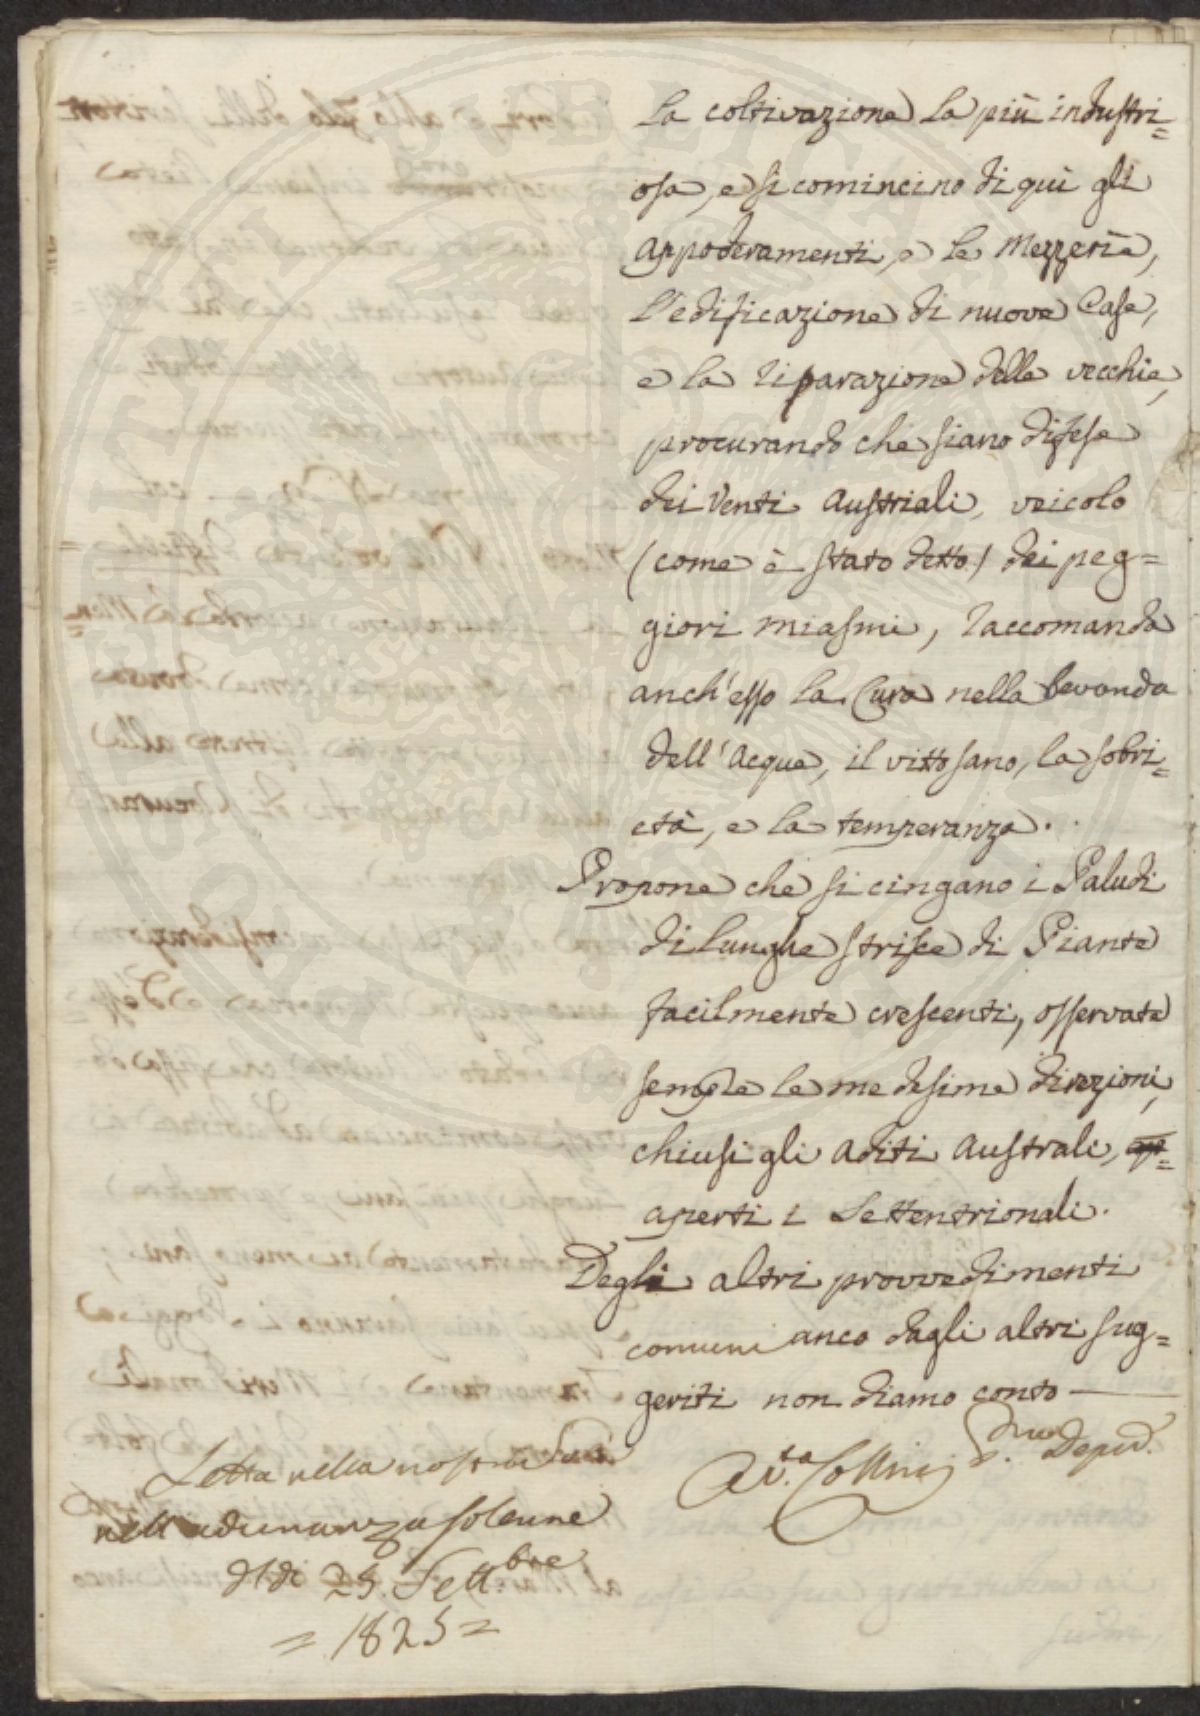 la coltivazione la più industri=
osa, e si comincino di quì gli
appoderamenti, e le Mezzerie,
l'edificazione di nuove Case,
e la riparazione delle vecchie,
procurando che siano difese
dei Venti Austriali, veicolo
(come è stato detto) dei peg=
giori miasmi, raccomanda
anch'esso la Cura nella bevanda
dell'Acqua, il vitto sano, la sobri=
età, e la temperanza.
Propone che si cingano i Paludi
di lunghe strisce di Piante
facilmente crescenti, osservate
sempre le medesime direzioni,
chiusi gli aditi Australi,
aperti i Settentrionali.
Degli altri provvedimenti
comuni anco dagli altri sug=
geriti non diamo conto —
Collini Deput.
Letta nella nostra
nell'adunanza solenne
del dì 25. Settbre
= 1825 =